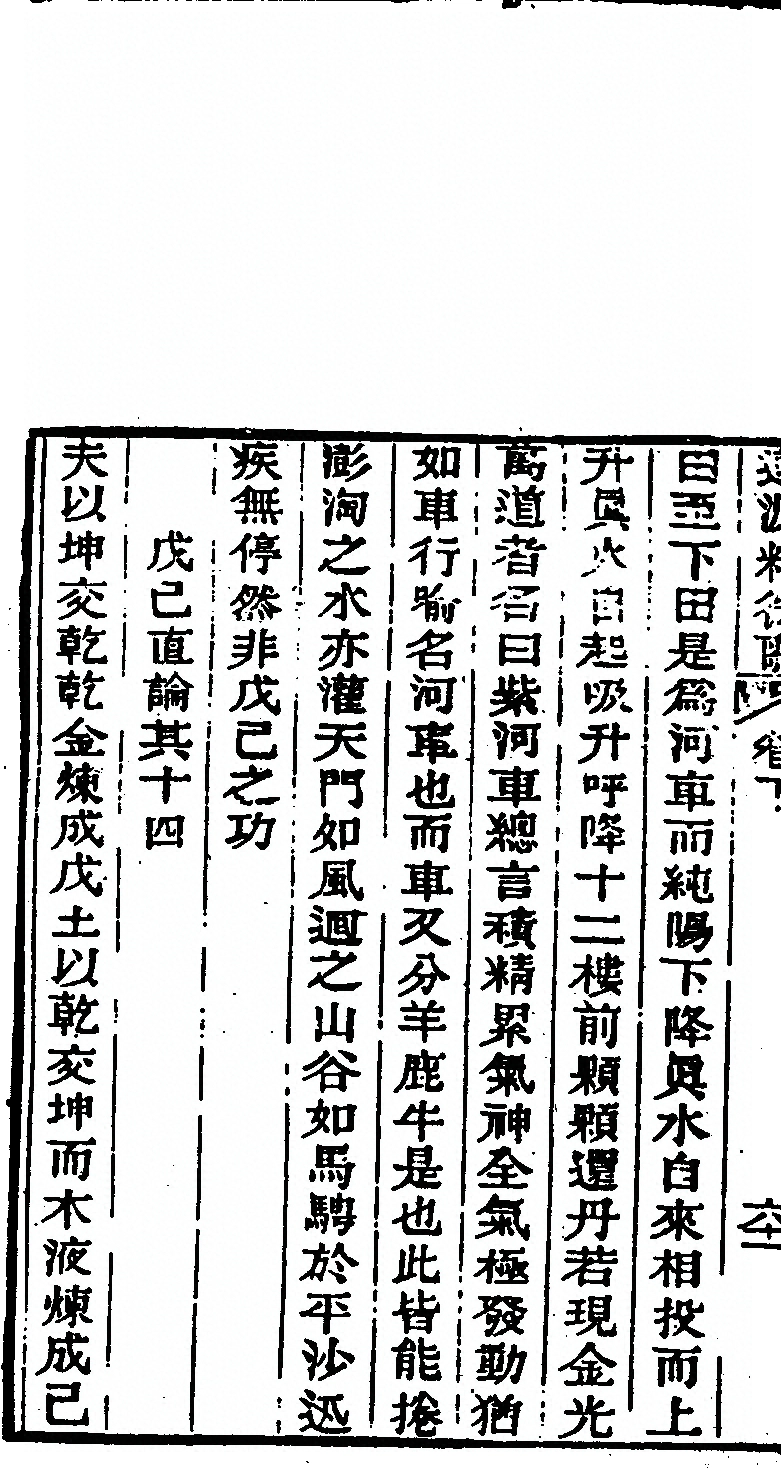 田至下田是爲河車而純陽下降眞水自來相投而上
升眞火自起吸升呼降十二樓前顆顆還丹若現金光
萬道者名曰紫河車總言積精累氣神全氣極發動猶
如車行喻名河車也而車又分羊鹿牛是也此皆能捲
澎淘之水亦灌天門如風迴之山谷如馬騁於平沙迅
疾無停然非戊己之功
戊己直論其十四
夫以坤交乾乾金煉成戊土以乾交坤而木液煉成己